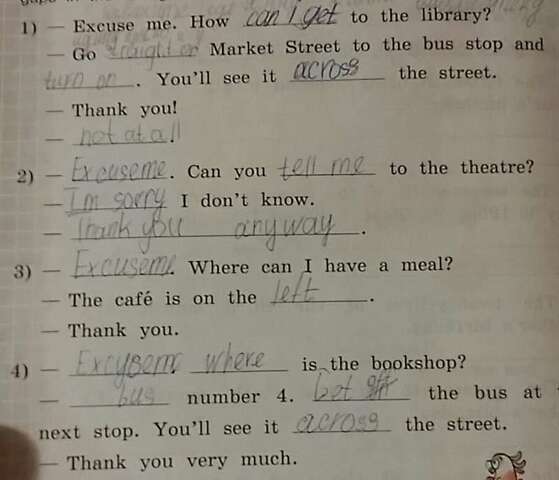 1) — Excuse me. How can I get to the library?
— Go straight on Market Street to the bus stop and
turn on. You'll see it across the street.
— Thank you!
— not at all
2) — Excuse me. Can you tell me to the theatre?
— I'm sorry I don't know.
— Thank you anyway.
3) — Excuse me. Where can I have a meal?
— The café is on the left.
— Thank you.
4) — Excuse me where is the bookshop?
— bus number 4. Get off the bus at
next stop. You'll see it across the street.
— Thank you very much.